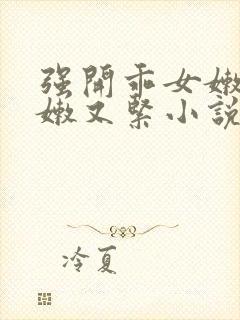 强開乖女嫩
嫩又緊小説
冷夏